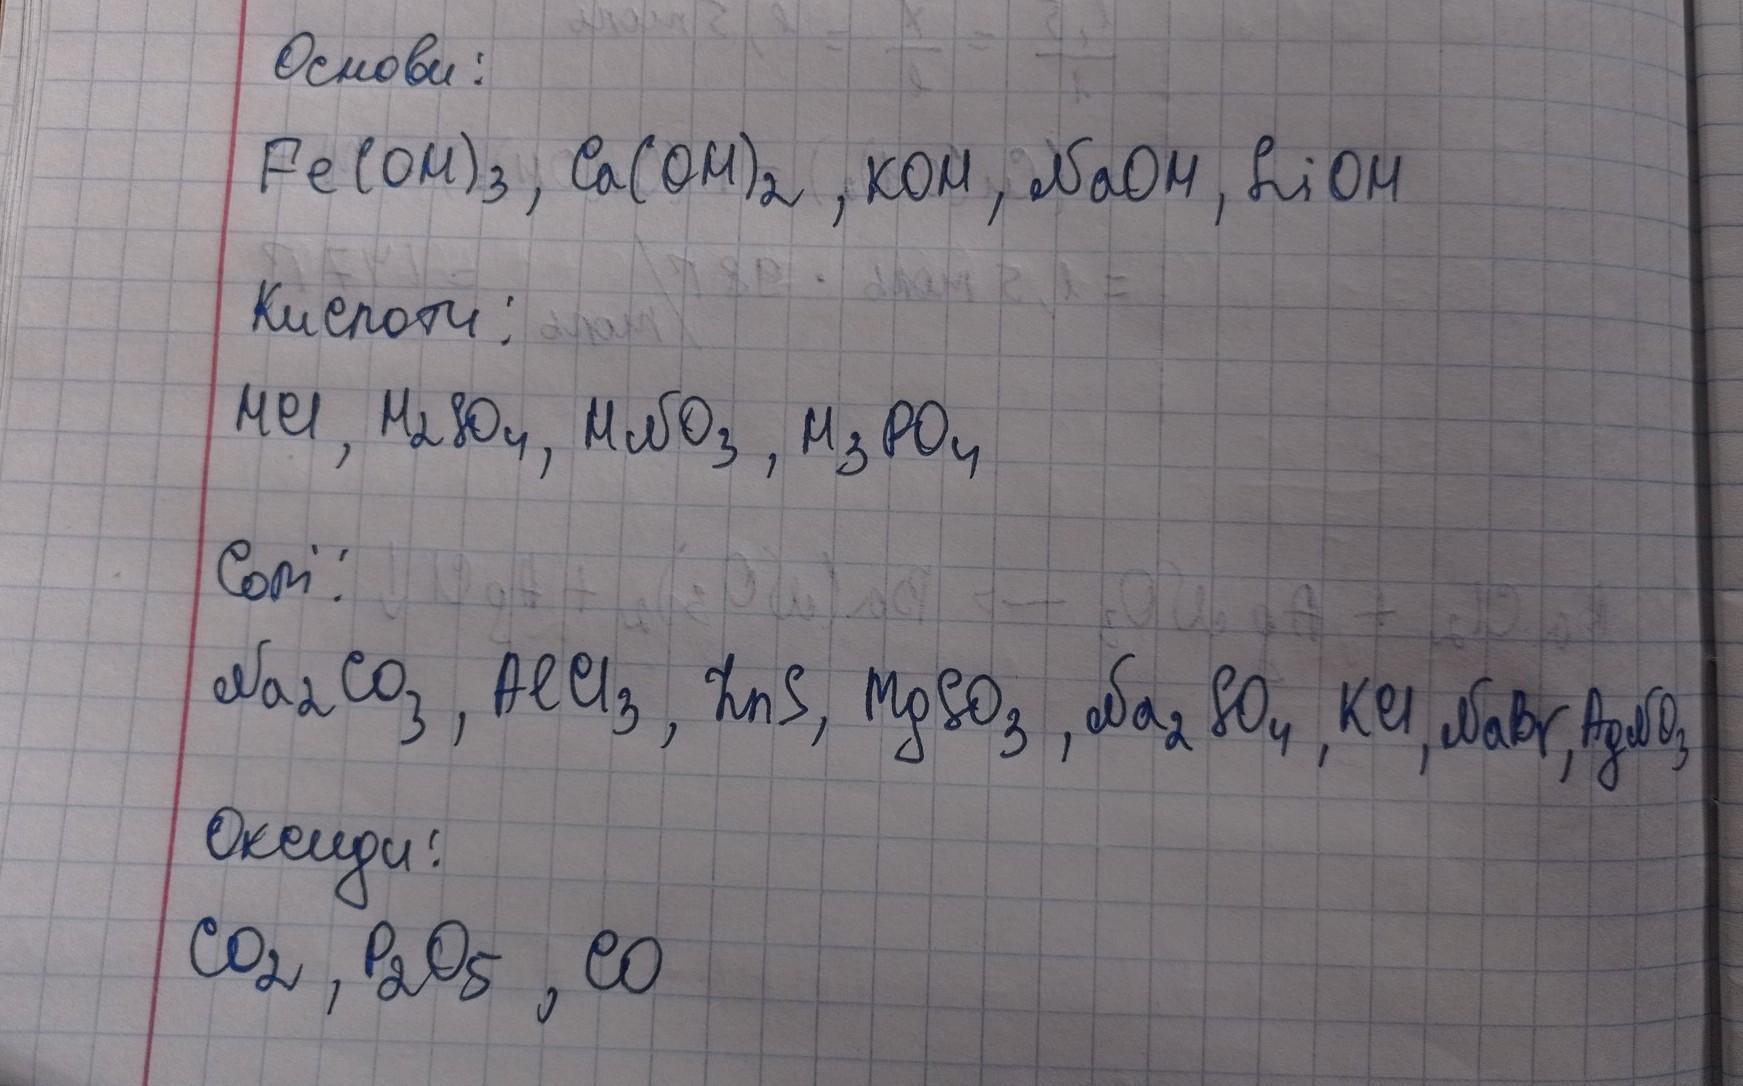 Основи:
Fe(OH)3, Ca(OH)2, KOH, NaOH, LiOH
Кислоти:
HCl, H2SO4, HNO3, H3PO4
Солі:
Na2CO3, AlCl3, ZnS, MgSO3, Na2SO4, KCl, NaBr, AgNO3
Оксиди:
CO2, P2O5, CO